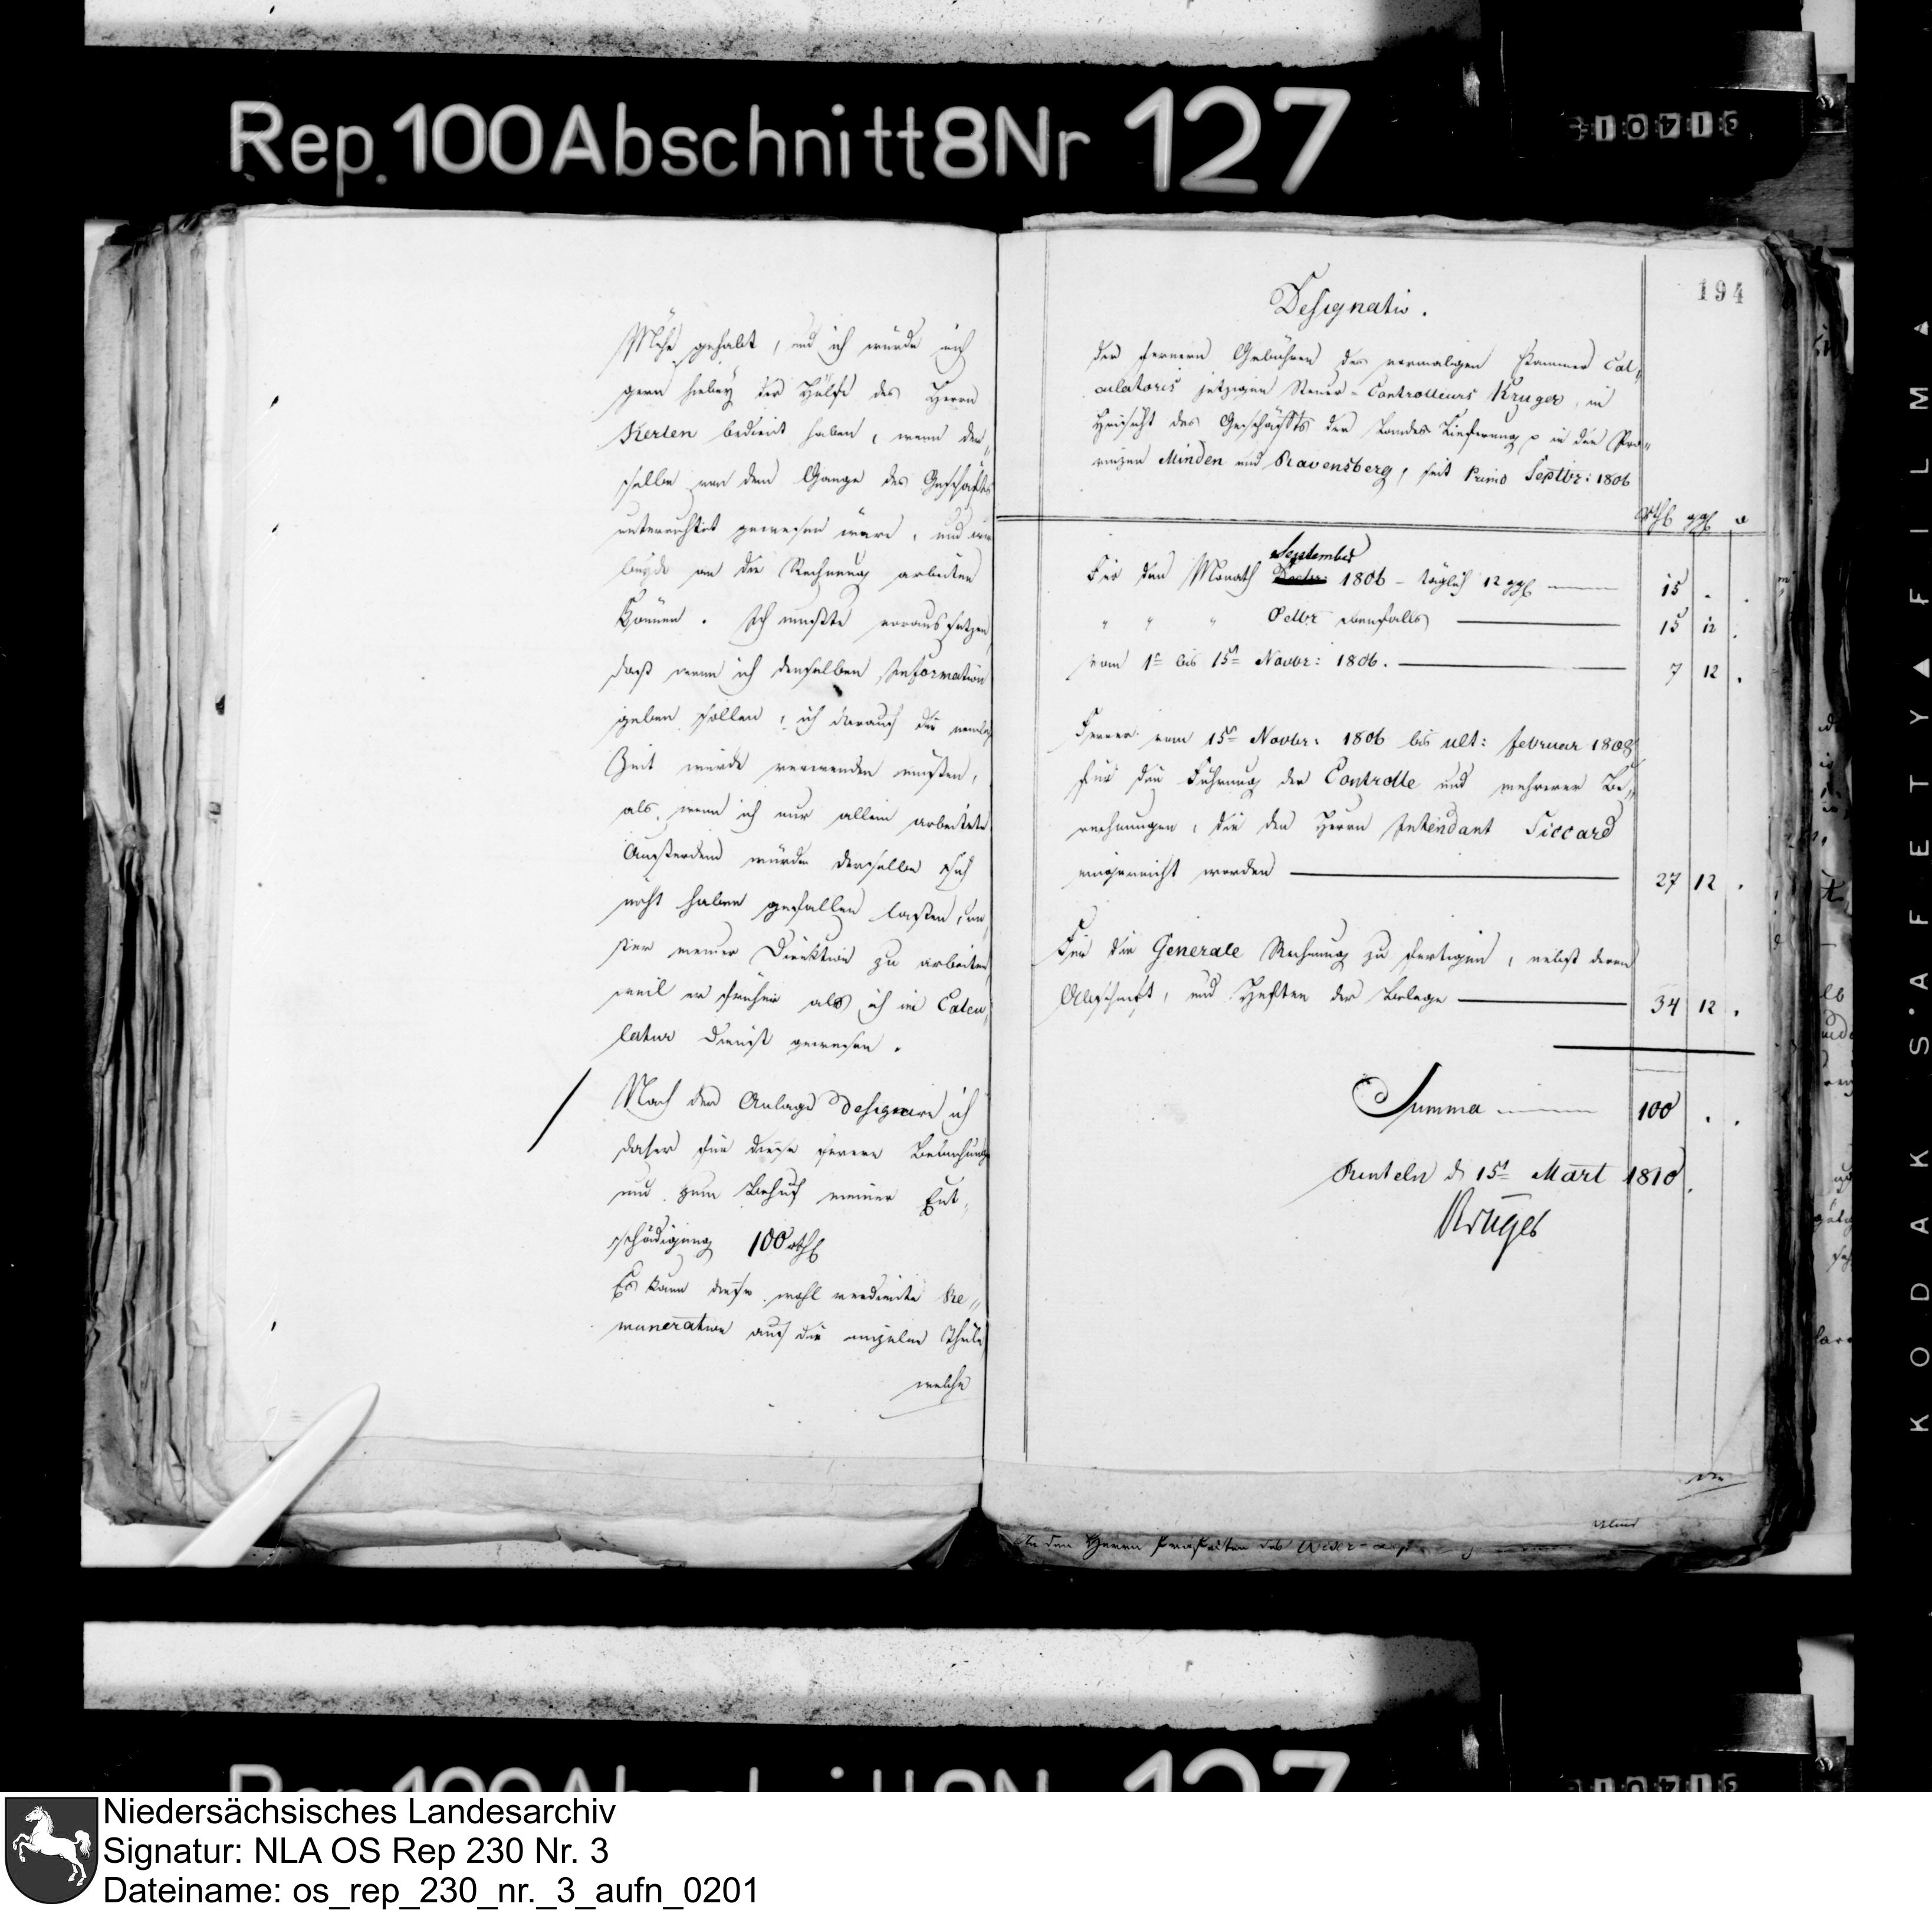 Rep. 100 Abschnitt 8 Nr 127
Mühe gehabt, und ich würde mich
gern hiebey der Hülfe des Herrn
Kerlen bedient haben, wenn der„
selbe von dem Gange des Geschäfts
unterrichtet gewesen wäre, und wir
beyde an die Rechnung arbeiten
können. Ich mußte voraussetzen
daß wenn ich denselben Information
geben sollen, ich darauf die nemliche
Zeit würde verwenden müßen,
als wenn ich nur allein arbeitete
Außerdem würde derselbe sich
nicht haben gefallen laßen, un
ter meiner Direktion zu arbeiten
weil er früher als ich im Calcu„
latur Dienst gewesen.
Nach der Anlage designire ich
daher für diese fernere Bemühung
und zum Behuf meiner Ent„
schädigung 100 rthl
Es kann diese wohl verdiente Re„
muneration auf die einzelne Theile
welche
194
Designatio.
der fernern Gebühren des vormaligen Kammer Cal„
culatoris jetzigen Steuer-Controlleurs Krüger, in
Hinsicht des Geschäffts der Landes Lieferung p in den Pro„
vinzen Minden und Ravensberg, seit Primo Septbr: 1806
Rthl ggl
September
Für den Monath 1806 – täglich 12 ggl 15 . .
" " " Octbr ebenfalls 15 12 .
vom 1t bis 15t Novbr: 1806. 7 12 .
Ferner vom 15t Novbr: 1806 bis ult: februar 1808
für die Führung der Controlle und mehrerer Be„
rechnungen, die den Herrn Intendant Siccard
eingereicht worden 27 12 .
Für die Generale Rechnung zu fertigen, nebst deren
Abschrift, und Heften der Belege 34 12 .
Summa 100 . .
Rinteln d 15t Mart 1810.
Krüger
den Herrn Praefecten des Weser-
KODAK SAFETY FILM
Niedersächsisches Landesarchiv
Signatur: NLA OS Rep 230 Nr. 3
Dateiname: os_rep_230_nr._3_aufn_0201